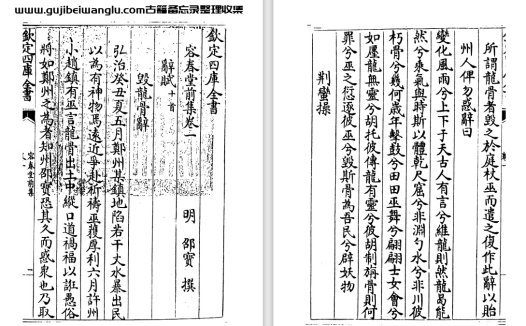 www.gujibeiwanglu.com古籍备忘录整理收集
欽定四庫全書
容春堂前集卷一
明 邵寶 撰
辭賦十首
毀龍骨辭
弘治癸丑夏五月鄭州某鎮地陷若干丈水暴出民
以為有神物焉遠近爭赴祈禱巫獲厚利六月許州
小趙鎮有巫言龍骨出土中縱口道禍福以誑愚俗
將如鄭州之為者知州邵寶恐其久而惑衆也乃取
欽定四庫全書
容春堂前集
所謂龍骨者毀之於庭杖巫而遣之復作此辭以貽
州人俾勿惑辭曰
變化風雨兮上下于天古人有言兮維龍則然龍曷能
然兮乘氣與時斯以體乾尺窟兮非淵勺水兮非川彼
朽骨兮幾何歲年擊鼓兮田田巫舞兮翩翩士女會兮
如廛龍無靈兮胡托彼傳龍有靈兮彼胡制旃骨則何
罪兮巫之衍逐彼巫兮毀斯骨為吾民兮辟妖物
荆蠻操